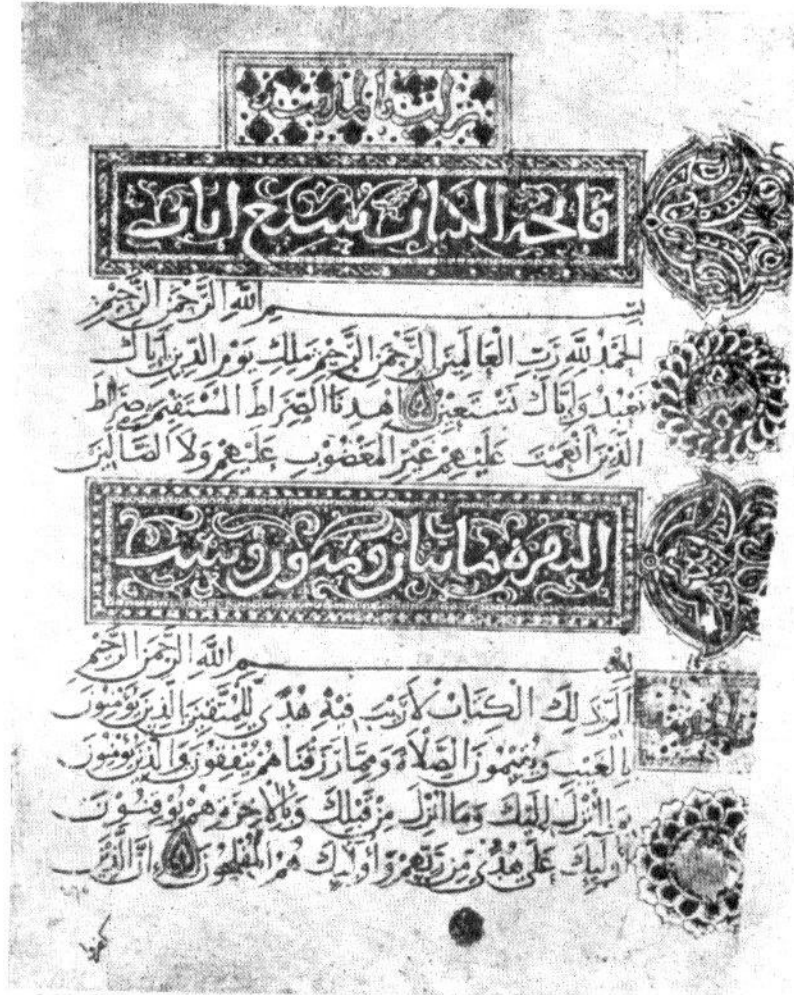 فاتحة الكتاب سبع ايات
بِسْمِ اللَّهِ الرَّحْمَنِ الرَّحِيْمِ
الحَمْدُ لِلَّهِ رَبِّ الْعَالَمِيْنَ الرَّحْمَنِ الرَّحِيْمِ مَلِكِ يَوْمِ الدِّيْنِ اِيَّاكَ
نَعْبُدُ وَاِيَّاكَ نَسْتَعِيْنُ اِهْدِنَا الصِّرَاطَ المُسْتَقِيْمَ صِرَاطَ
الَّذِيْنَ اَنْعَمْتَ عَلَيْهِمْ غَيْرِ المَغْضُوْبِ عَلَيْهِمْ وَلَا الضَّالِّيْنَ
البقرة مايتان وست
بِسْمِ اللَّهِ الرَّحْمَنِ الرَّحِيْمِ
الم ذَلِكَ الْكِتَابُ لَا رَيْبَ فِيْهِ هُدًى لِلْمُتَّقِيْنَ الَّذِيْنَ يُؤْمِنُوْنَ
بِالْغَيْبِ وَيُقِيْمُوْنَ الصَّلَاةَ وَمِمَّا رَزَقْنَاهُمْ يُنْفِقُوْنَ وَالَّذِيْنَ يُؤْمِنُوْنَ
بِمَا اُنْزِلَ اِلَيْكَ وَمَا اُنْزِلَ مِنْ قَبْلِكَ وَبِالْاٰخِرَةِ هُمْ يُوْقِنُوْنَ
اُوْلَٰئِكَ عَلَى هُدًى مِنْ رَبِّهِمْ وَاُوْلَٰئِكَ هُمُ الْمُفْلِحُوْنَ اِنَّ الَّذِيْنَ
كفروا